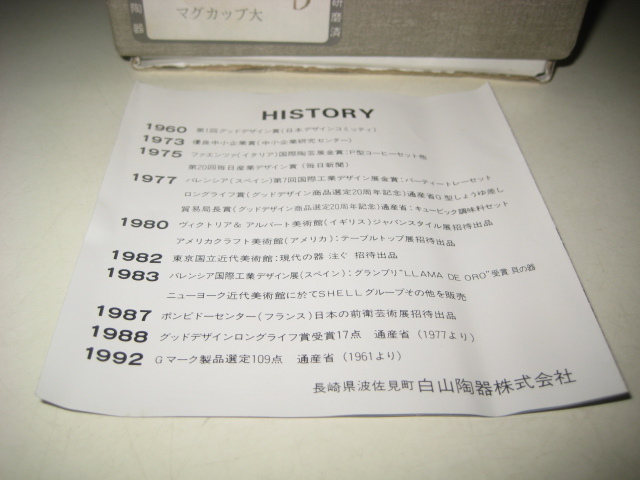 陶器
マグカップ大
D
研磨済
HISTORY
1960 第1回グッドデザイン賞(日本デザインコミッティ)
1973 優良中小企業賞(中小企業研究センター)
1975 ファエンツァ(イタリア)国際陶芸展金賞:P型コーヒーセット他
第20回毎日産業デザイン賞(毎日新聞)
1977 バレンシア(スペイン)第7回国際工業デザイン展金賞:パーティートレーセット
ロングライフ賞(グッドデザイン商品選定20周年記念)通産省G型しょうゆ差し
貿易局長賞(グッドデザイン商品選定20周年記念)通産省:キュービック調味料セット
1980 ヴィクトリア& アルバート美術館(イギリス)ジャパンスタイル展招待出品
アメリカクラフト美術館(アメリカ):テーブルトップ展招待出品
1982 東京国立近代美術館:現代の器 注ぐ 招待出品
1983 バレンシア国際工業デザイン展(スペイン):グランプリ"LLAMA DE ORO"受賞 貝の器
ニューヨーク近代美術館に於てSHELLグループその他を販売
1987 ポンピドーセンター(フランス)日本の前衛芸術展招待出品
1988 グッドデザインロングライフ賞受賞17点 通産省(1977より)
1992 Gマーク製品選定109点 通産省(1961より)
長崎県波佐見町 白山陶器株式会社